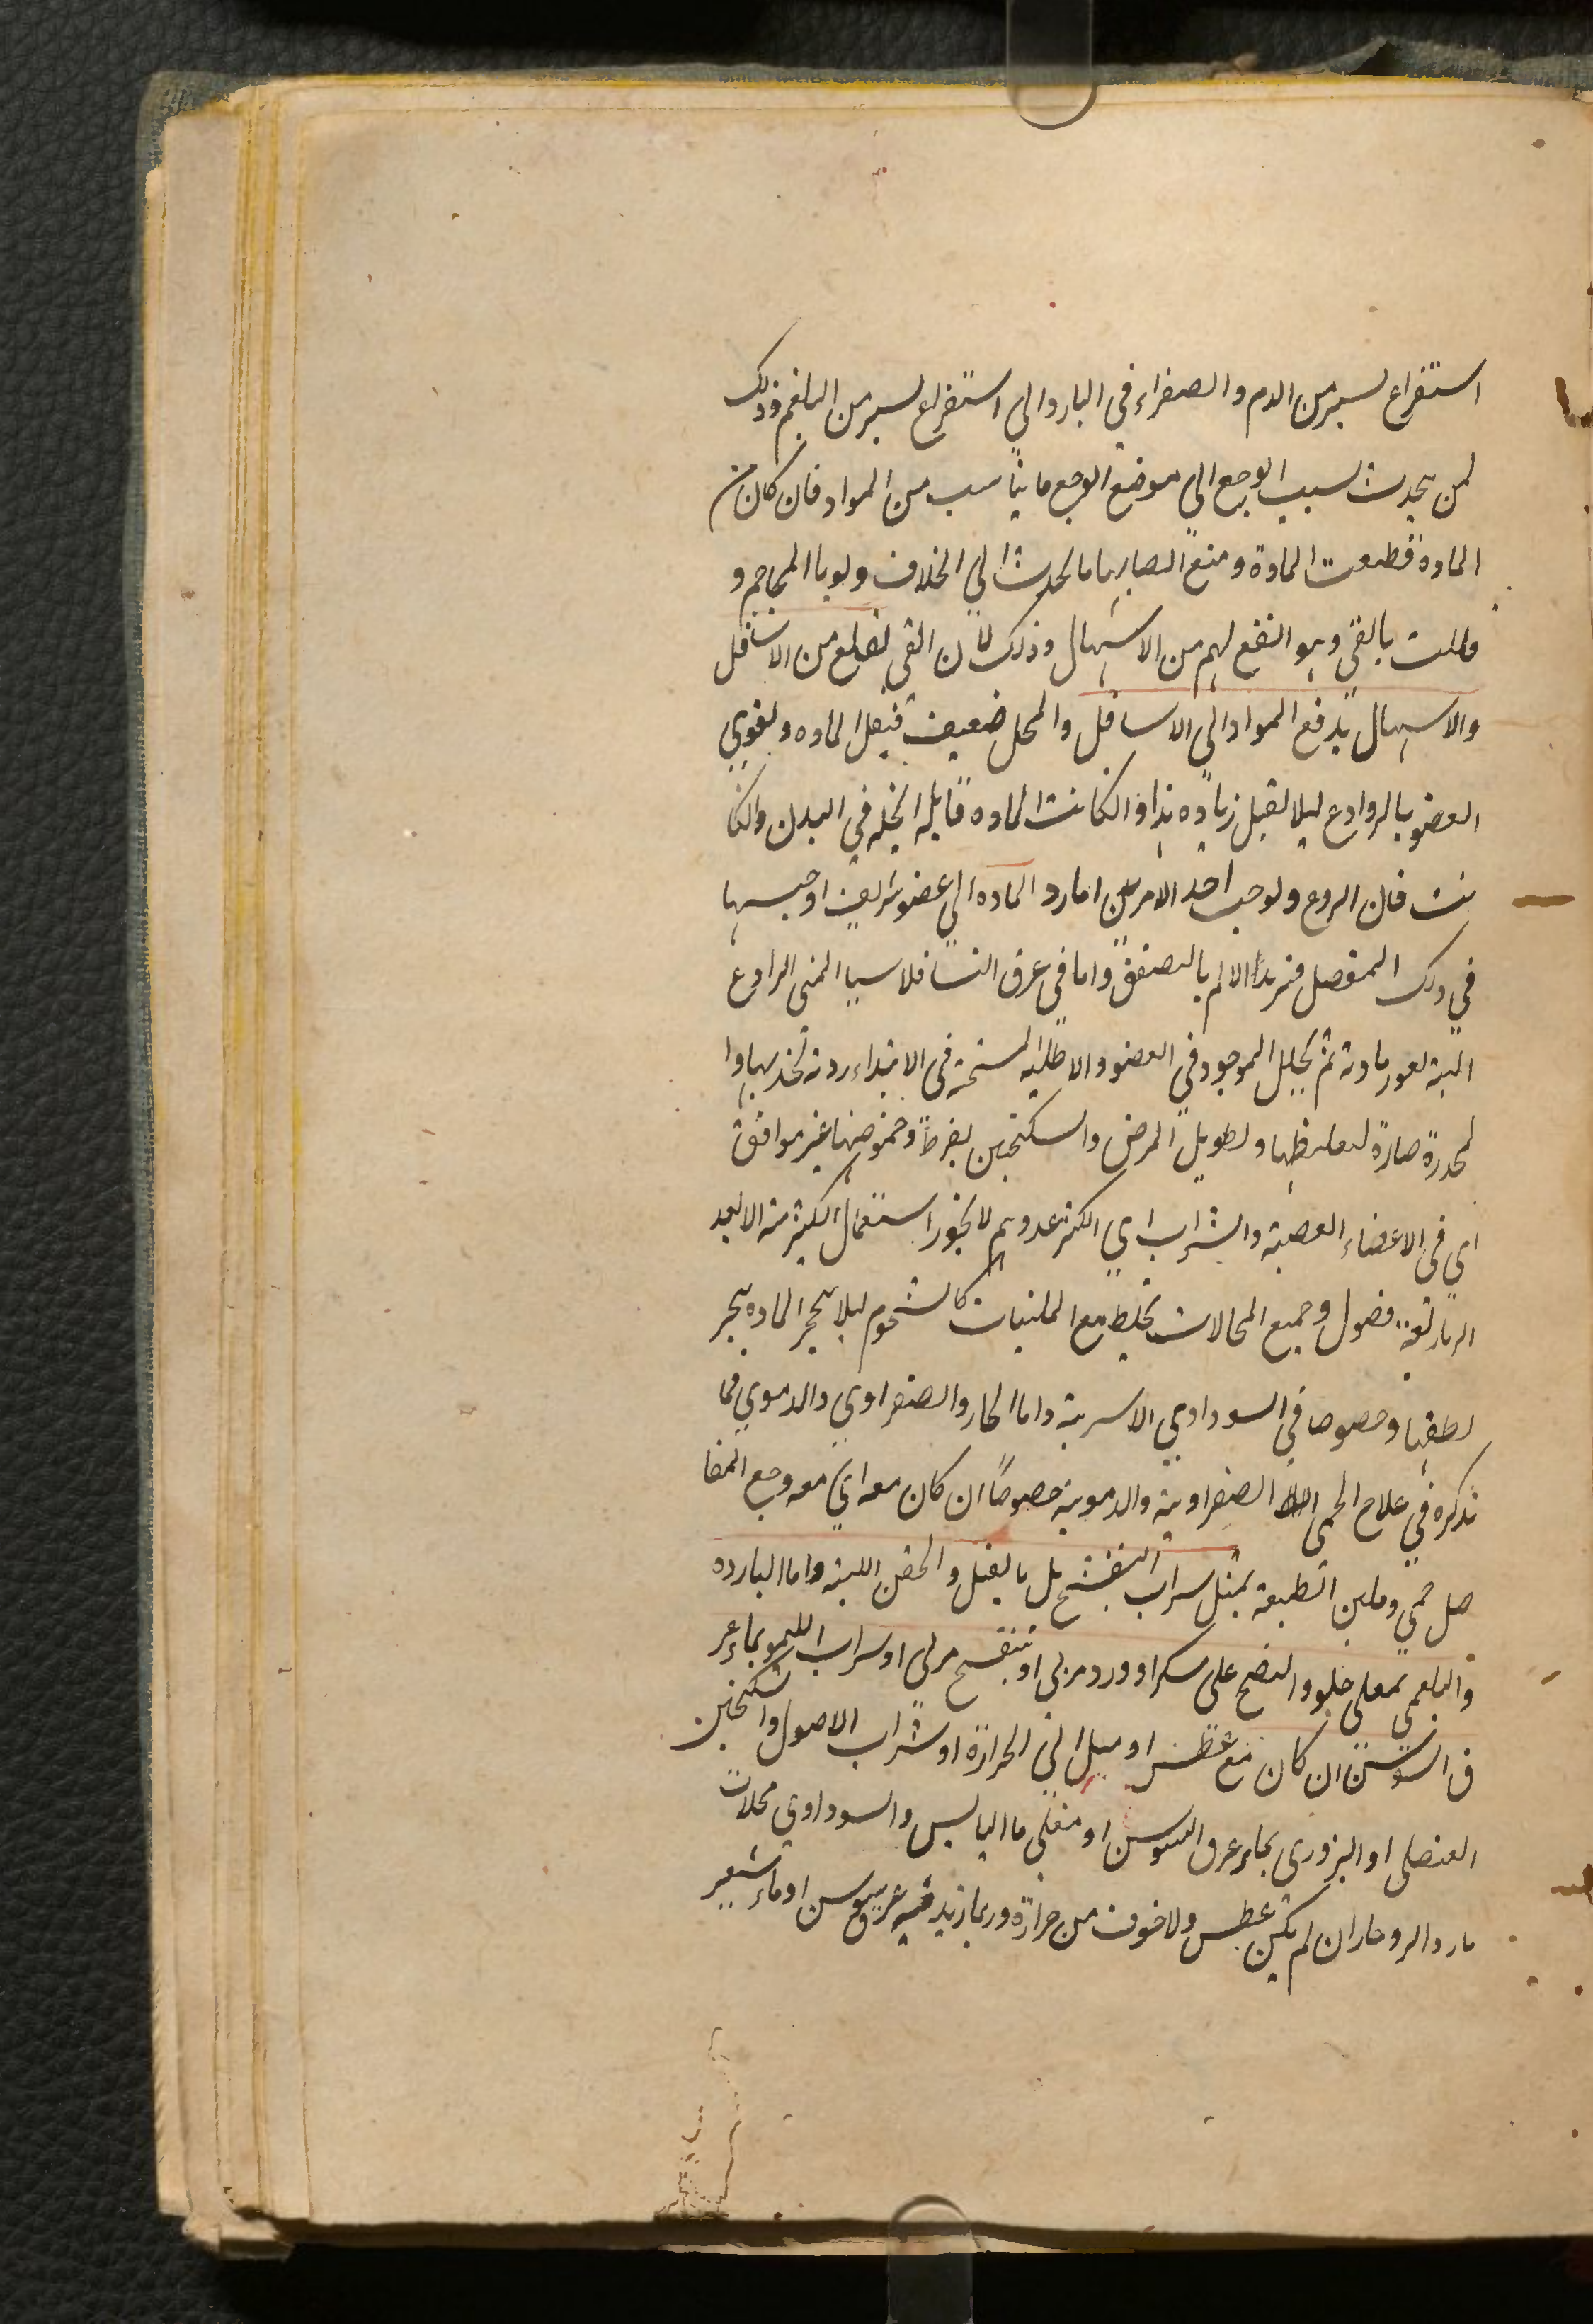 استفراغ يسير من الدم والصفراء في البارد الي استفراغ يسير من البلغم وذلك
لمن يحدث بسبب الوجع الي موضع الوجع ما يناسب من المواد فان كان من
المادة قطعت المادة ومنع انصبابها بالجذب الي الخلاف ولو بالمحاجم و
وامليت بالقي وهو انفع لهم من الاسهال وذلك لان القي يقلع من الاسافل
والاسهال يدفع المواد الي الاسافل والمحل ضعيف فيقل المادة ويقوي
العضو بالروادع ليلا يقبل زيادة هذا وان كانت المادة قليلة في البدن وان كا
نت فان الردع يوجب احد الامرين اما رد المادة الي عضو شريف او حبسها
في ذلك المفصل فيزيد الالم بالتصفق واما في عرق النسا فلا سيما المني الرادع
البتة لغور مادته ثم تحليل الموجود في العضو والاطلية المسخنة في الابتداء ردية لجذبها وا
لمخدرة ضارة لتغليظها وتطويل المرض والسكنجبين يفرط وحموضتها غير موافقة
اي في الاعضاء العصبية والشراب اي اكثر عدوهم لا يجوز استعمال الكثير منه الا بعد
اربعة فصول وجميع المحللات تخلط مع الملينات كالشحوم ليلا تتحجر المادة بتبخر
لطيفها وخصوصا في السوداوي الا سريية واما الحار والصفراوي والدموي فما
نذكره في علاج الحمي الصفراوية والدموية خصوصاً ان كان معه اي مع وجع المفا
صل حمي وملين الطبيعة بمثل شراب البنفسج بل بالفتل والحقن اللينة واما الباردة
والبلغمي بمغلي حلو والنضج علي سكر او ورد مربي او بنفسج مربي او شراب الليمو بماء عر
ق السوسن ان كان مع عطش او ميل الي الحرارة او شراب الاصول والسكنجبين
العنصلي او البزوري بماء عرق السوسن او مغلي ما اليابس والسوداوي محلات
بارد الرو حار ان لم يكن عطش ولا خوف من حرارة وربما زيد فيه عرق سوسن او ماء شعير